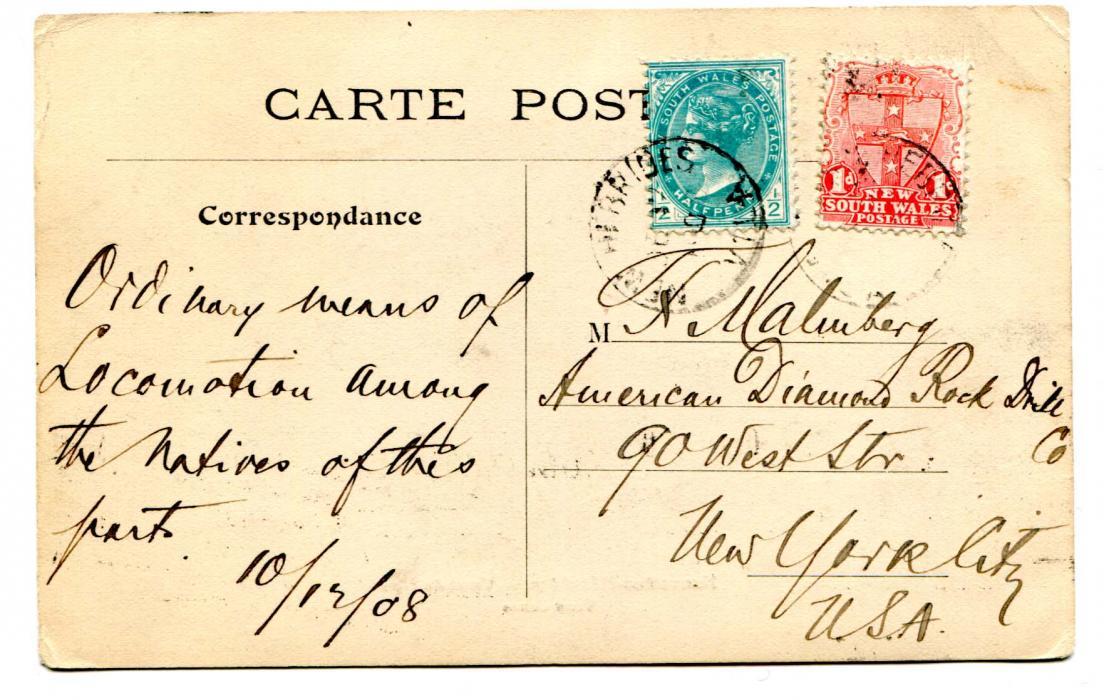 CARTE POST
SOUTH WALES POSTAGE
HALFPE
1/2 1/2
1d 1d
NEW
SOUTH WALES
POSTAGE
HEBRIDES
Correspondance
Ordinary means of
Locomotion among
the Natives of this
parts
10/12/08
M Malmberg
American Diamond Rock Drill
Co
90 West Str:
New York City
U.S.A.